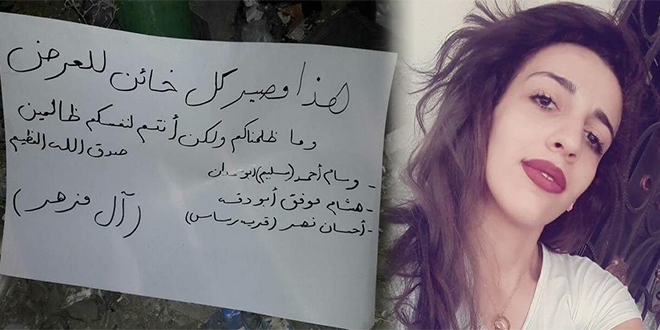 هذا مصير كل خائن للعرض
وما ظلمناكم ولكن أنتم لنفسكم ظالمين
صدق الله العظيم
- وسام أحمد (سليم) أبو مدان
- هشام موفق أبو دقه
- أحسان نصر (قرب رساس)
(آل مزهر)